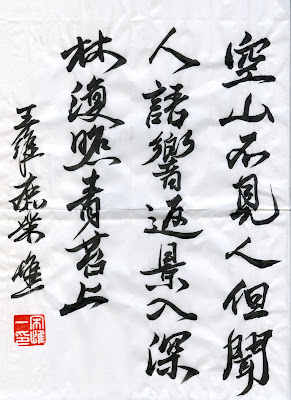 空山不見人但聞
人語響返景入深
林復照青苔上
王維鹿柴 雄